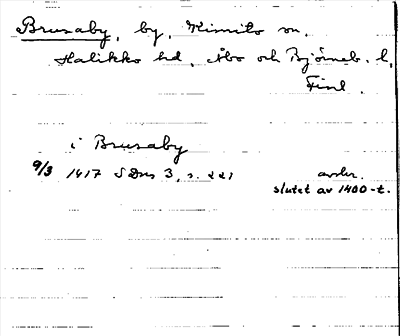 Brusaby, by, Kimito sn.
Halikko hd, Åbo och Björneb. l,
Finl.
i Brusaby
9/3 1417 SDns 3, s. 221 avskr.
slutet av 1400-t.